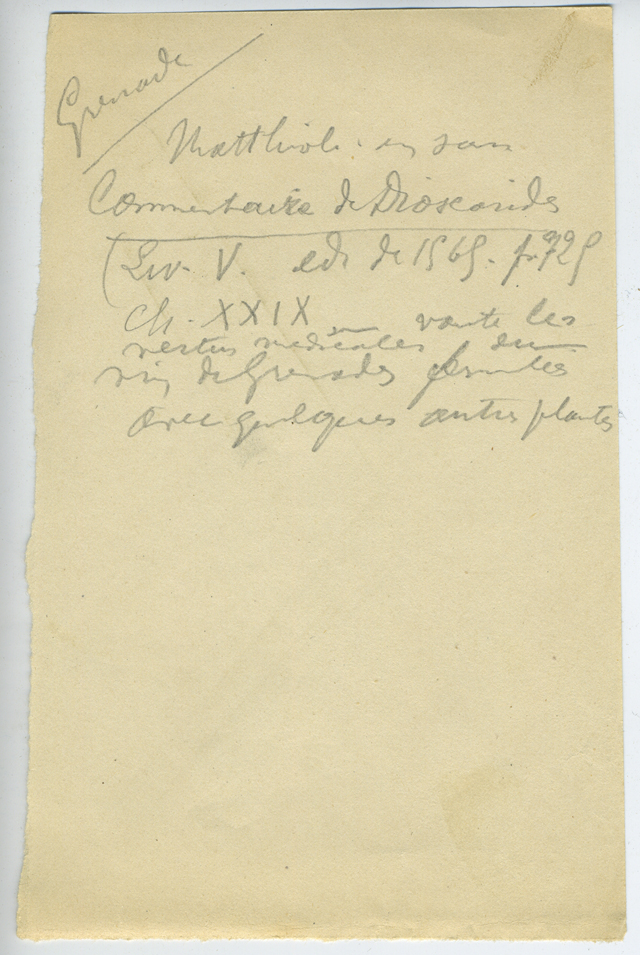 Grenade
Matthiole en son
Commentaire de Dioscorides
(Liv. V. edi de 1565. p. 729
ch. XXIX vante les
vertus médicales du
vin de Grenades
avec quelques autres plantes